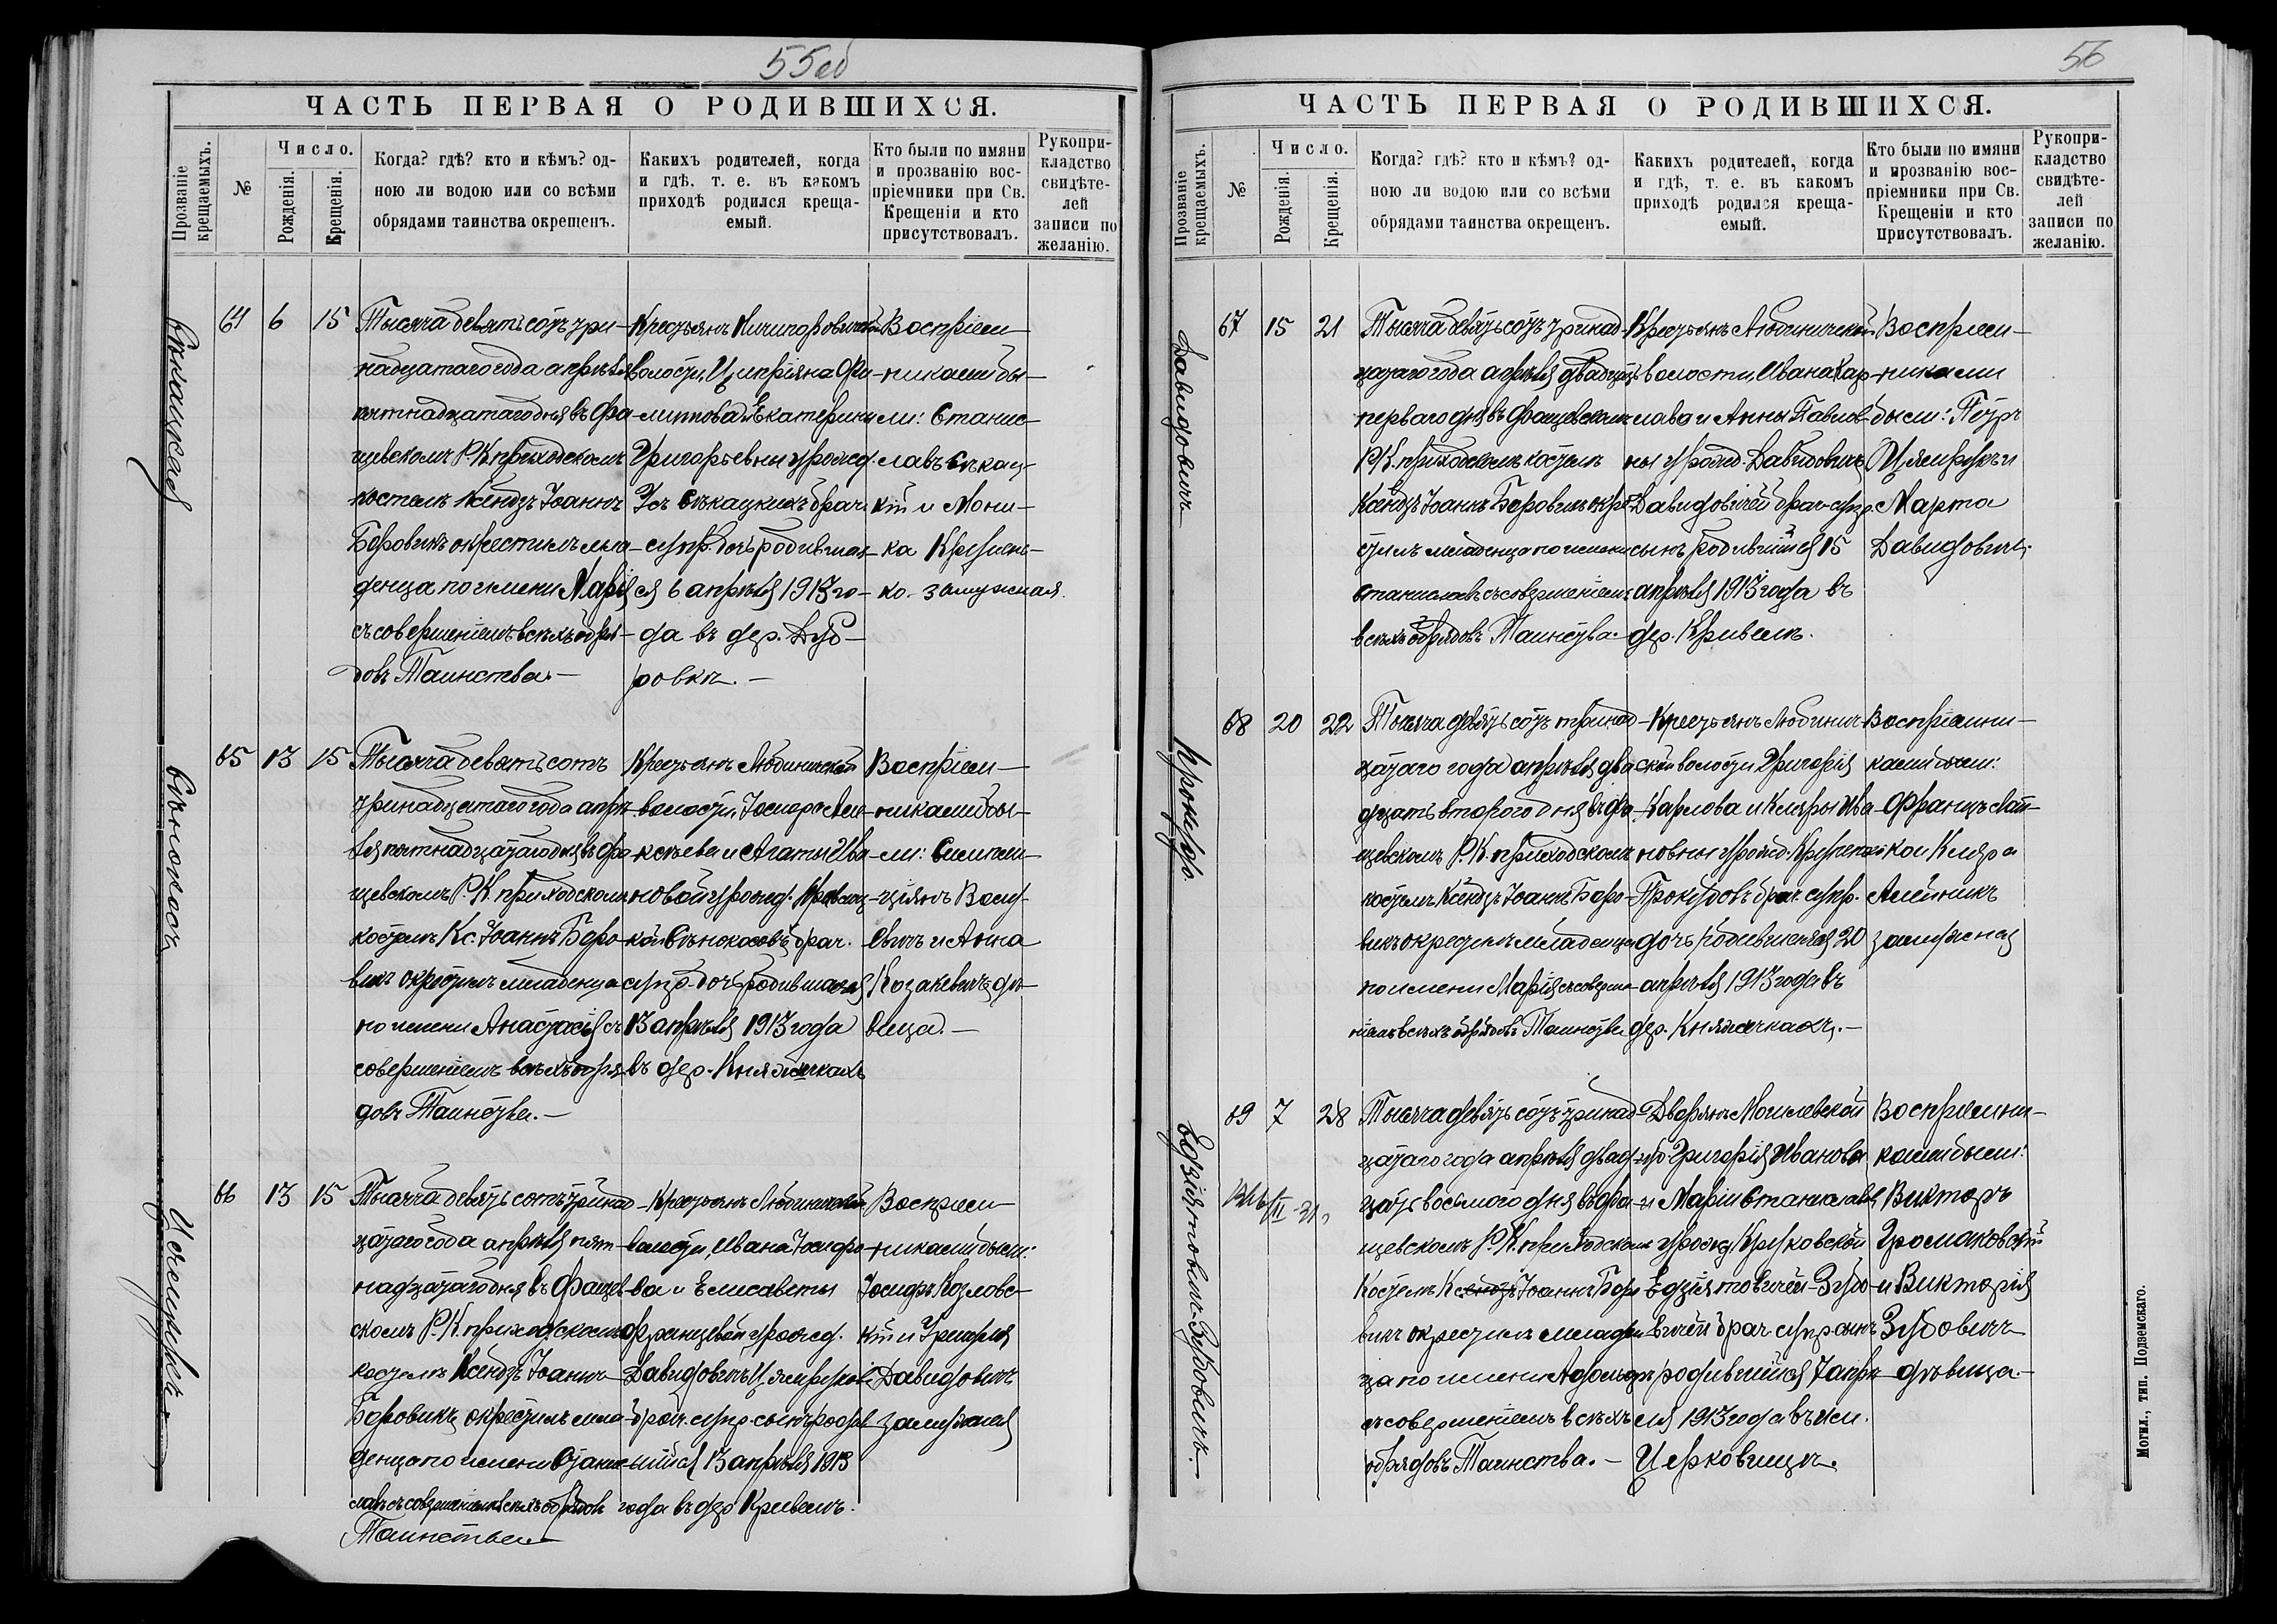 55 об
ЧАСТЬ ПЕРВАЯ О РОДИВШИХСЯ.
Прозваніе крещаемыхъ.
№
Число.
Рожденія.
Крещенія.
Когда? гдѣ? кто и кѣмъ? од-
ною ли водою или со всѣми
обрядами таинства окрещенъ.
Какихъ родителей, когда
и гдѣ. т. е. въ какомъ
приходѣ родился креща-
емый.
Кто были по имяни
и прозванію вос-
пріемники при Св.
Крещеніи и кто
присутствовалъ.
Рукопри-
кладство
свидѣте-
лей
записи по
желанію.
64 6 15
Тысяча девятьсотъ три-
надцатаго года апрѣля
пятнадцатаго дня въ Фа-
щевскомъ Р.К. приходскомъ
костелѣ Ксендзъ Іоаннъ
Боровикъ окрестилъ мла-
денца по имени Марія
съ совершеніемъ всѣхъ обря-
довъ Таинства.—
Крестьянъ Кичипоровической
волости, Ципріяна Фи-
липпова и Екатерины
Григорьевны урожд.
Усъ Сѣкацкихъ брач.
супр. дочь родившая-
ся 6 апрѣля 1913 го-
да въ дер. Дуб-
ровкѣ.—
Воспріем-
никами бы-
ли: Станис-
лавъ Сѣкац-
кій и Мони-
ка Крупень-
ко- замужная.
65 13 15
Сѣнокосъ
Тысяча девятьсотъ
тринадцатаго года апрѣ-
ля пятнадцатаго дня въ Фа-
щевскомъ Р.К. приходскомъ
костелѣ Кс. Іоаннъ Боро-
викъ окрестилъ младенца
по имени Анастасія съ
совершеніемъ всѣхъ обря-
довъ Таинства.—
Крестьянъ Любиничской
волости, Іосифа Але-
ксѣева и Агаты Ива-
новой урожд.
Сѣнокосовъ брач.
супр. дочь родившаяся
13 апрѣля 1913 года
въ дер. Княжичкахъ
Воспріем-
никами бы-
ли: Симпли-
ціянъ
и Анна
Козакевичъ дѣ-
вица.—
66 13 15
Тысяча девятьсотъ тринад-
цатаго года апрѣля пят-
надцатаго дня въ Фащев-
скомъ Р.К. приходскомъ
костелѣ Ксендзъ Іоаннъ
Боровикъ окрестилъ мла-
денца по имени Стани-
славъ съ совершеніемъ всѣхъ обрядовъ
Таинства—
Крестьянъ Любиничской
волости, Ивана Іосифо-
ва и Елисаветы
Францевой урожд.
Давидовичъ
брач. супр. сынъ родив-
шійся 13 апрѣля 1913
года въ дер Кривелѣ.
Воспріем-
никами были:
Іосифъ Козловс-
кій и
Давидовичъ
замужная
56
ЧАСТЬ ПЕРВАЯ О РОДИВШИХСЯ.
Прозваніе крещаемыхъ.
№
Число.
Рожденія.
Крещенія.
Когда? гдѣ? кто и кѣмъ? од-
ною ли водою или со всѣми
обрядами таинства окрещенъ.
Какихъ родителей, когда
и гдѣ, т. е. въ какомъ
приходѣ родился креща-
емый.
Кто были по имяни
и прозванію вос-
пріемники при Св.
Крещеніи и кто
присутствовалъ.
Рукопри-
кладство
свидѣте-
лей
записи по
желанію.
Давидовичъ
67 15 21
Тысяча девятьсотъ тринад-
цатаго года апрѣля двадцать
перваго дня въ Фащевскомъ
Р.К. приходскомъ костелѣ
Ксендзъ Іоаннъ Боровикъ окре-
стилъ младенца по имени
Станиславъ съ совершеніемъ
всѣхъ обрядовъ Таинства.
Крестьянъ Любиничской
волости, Ивана Кар-
лова и Анны Павлов-
ны урожд. Давидовичъ
Давидовичей брач. супр.
сынъ родившійся 15
апрѣля 1913 года въ
дер. Кривелѣ.
Воспріем-
никами
были: Петръ
и
Марта
Давидовичъ.
68 20 22
Тысяча девятьсотъ тринад-
цатаго года апрѣля два-
дцать второго дня въ Фа-
щевскомъ Р.К. приходскомъ
костелѣ Ксендзъ Іоаннъ Боро-
викъ окрестилъ младенца
по имени Марія съ соверше-
ніемъ всѣхъ обрядовъ Таинства
Крестьянъ Любинич-
ской волости Григорія
Карлова и Клары Ива-
новны урожд.
брач. супр.
дочь родившаяся 20
апрѣля 1913 года въ
дер. Княжичкахъ.—
Воспріемни-
ками были:
Францъ
и Клара
Алейникъ
замужная
Едзіятовичъ-Зубовичъ.
69 7 28
Тысяча девятьсотъ тринад-
цатаго года апрѣля двад-
цать восьмого дня въ Фа-
щевскомъ Р.К. приходскомъ
костелѣ Ксендзъ Іоаннъ Боро-
викъ окрестилъ младен-
ца по имени Адольфъ
съ совершеніемъ всѣхъ
обрядовъ Таинства.—
Дворянъ Могилевской
губ Григорія Иванова
и Маріи Станиславов.
урожд. Круковской
Едзіятовичей-Зубо-
вичей брач. супр. сынъ
родившійся 7 апрѣ-
ля 1913 года въ им.
Церковище.
Воспріемни-
ками были:
Викторъ
Громаковскій
и Викторія
Зубовичъ
дѣвица.—
Могил., тип. Подземскаго.